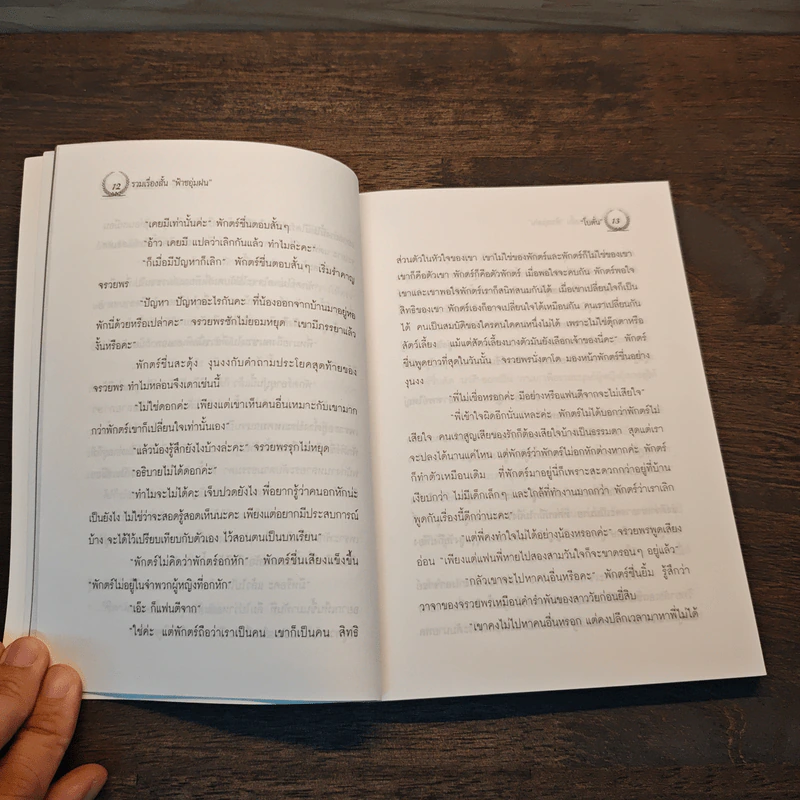 12 รวมเรื่องสั้น "ฟ้าชอุ่มฝน"
"เคยมีเท่านั้นค่ะ" พักตร์ชื่นตอบสั้นๆ
"อ้าว เคยมี แปลว่าเลิกกันแล้ว ทำไมล่ะคะ"
"ก็เมื่อมีปัญหาก็เลิก" พักตร์ชื่นตอบสั้นๆ เริ่มรำคาญ
จรวยพร
"ปัญหา ปัญหาอะไรกันคะ ที่น้องออกจากบ้านมาอยู่หอ
พักนี่ด้วยหรือเปล่าคะ" จรวยพรซักไม่ยอมหยุด "เขามีภรรยาแล้ว
งั้นหรือคะ"
พักตร์ชื่นสะดุ้ง งุนงงกับคำถามประโยคสุดท้ายของ
จรวยพร ทำไมหล่อนจึงเดาเช่นนี้
"ไม่ใช่ดอกค่ะ เพียงแต่เขาเห็นคนอื่นเหมาะกับเขามาก
กว่าพักตร์เขาก็เปลี่ยนใจเท่านั้นเอง"
"แล้วน้องรู้สึกยังไงบ้างล่ะคะ" จรวยพรรุกไม่หยุด
"อธิบายไม่ได้ดอกค่ะ"
"ทำไมจะไม่ได้คะ เจ็บปวดยังไง พี่อยากรู้ว่าคนอกหักน่ะ
เป็นยังไง ไม่ใช่ว่าจะสอดรู้สอดเห็นนะคะ เพียงแต่อยากมีประสบการณ์
บ้าง จะได้ไว้เปรียบเทียบกับตัวเอง ไว้สอนตนเป็นบทเรียน"
"พักตร์ไม่คิดว่าพักตร์อกหัก" พักตร์ชื่นเสียงแข็งขึ้น
"พักตร์ไม่อยู่ในจำพวกผู้หญิงที่อกหัก"
"เอ๊ะ ก็แฟนตีจาก"
"ใช่ค่ะ แต่พักตร์ถือว่าเราเป็นคน เขาก็เป็นคน สิทธิ
"โบตั๋น" 13
ส่วนตัวในหัวใจของเขา เขาไม่ใช่ของพักตร์และพักตร์ก็ไม่ใช่ของเขา
เขาก็คือตัวเขา พักตร์ก็คือตัวพักตร์ เมื่อพอใจจะคบกัน พักตร์พอใจ
เขาและเขาพอใจพักตร์เราก็สนิทสนมกันได้ เมื่อเขาเปลี่ยนใจก็เป็น
สิทธิของเขา พักตร์เองก็อาจเปลี่ยนใจได้เหมือนกัน คนเราเปลี่ยนกัน
ได้ คนเป็นสมบัติของใครคนใดคนหนึ่งไม่ได้ เพราะไม่ใช่ตุ๊กตาหรือ
สัตว์เลี้ยง แม้แต่สัตว์เลี้ยงบางตัวมันยังเลือกเจ้าของนี่คะ" พักตร์
ชื่นพูดยาวที่สุดในวันนั้น จรวยพรนั่งตาโต มองหน้าพักตร์ชื่นอย่าง
งุนงง
"พี่ไม่เชื่อหรอกค่ะ มีอย่างหรือแฟนตีจากจะไม่เสียใจ"
"พี่เข้าใจผิดอีกนั่นแหละค่ะ พักตร์ไม่ได้บอกว่าพักตร์ไม่
เสียใจ คนเราสูญเสียของรักก็ต้องเสียใจบ้างเป็นธรรมดา สุดแต่เรา
จะปลงได้นานแค่ไหน แต่พักตร์ว่าพักตร์ไม่อกหักต่างหากค่ะ พักตร์
ก็ทำตัวเหมือนเดิม ที่พักตร์มาอยู่นี่ก็เพราะสะดวกกว่าอยู่ที่บ้าน
เงียบกว่า ไม่มีเด็กเล็กๆ และใกล้ที่ทำงานมากกว่า พักตร์ว่าเราเลิก
พูดกันเรื่องนี้ดีกว่านะคะ"
"แต่พี่คงทำใจไม่ได้อย่างน้องหรอกค่ะ" จรวยพรพูดเสียง
อ่อน "เพียงแต่แฟนพี่หายไปสองสามวันใจก็จะขาดรอนๆ อยู่แล้ว"
"กลัวเขาจะไปหาคนอื่นหรือคะ" พักตร์ชื่นยิ้ม รู้สึกว่า
วาจาของจรวยพรเหมือนคำรำพันของสาววัยก่อนยี่สิบ
"เขาคงไม่ไปหาคนอื่นหรอก แต่คงปลีกเวลามาหาพี่ไม่ได้